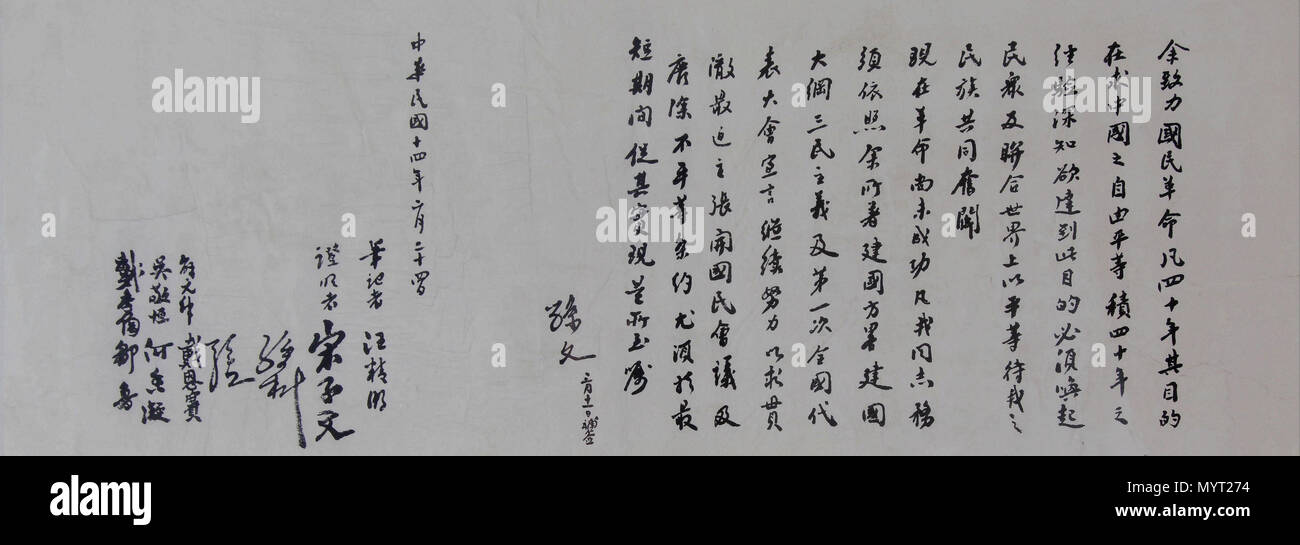 余致力國民革命凡四十年其目的
在求中國之自由平等積四十年之
經驗深知欲達到此目的必須喚起
民眾及聯合世界上以平等待我之
民族共同奮鬪
現在革命尚未成功凡我同志務
須依照余所著建國方畧建國
大綱三民主義及第一次全國代
表大會宣言繼續努力以求貫
澈最近主張開國民會議及
廢除不平等條約尤須於最
短期間促其實現是所至囑
孫文 三月十一日補簽
中華民國十四年二月二十四日
筆記者 汪精衞
證明者 宋子文
孫科
孔
邵元冲 戴恩賽
吳敬恒 何香凝
戴季陶 鄒魯
alamy
a
a
a
a
a
a
a
alamy
Image ID: MYT274
www.alamy.com